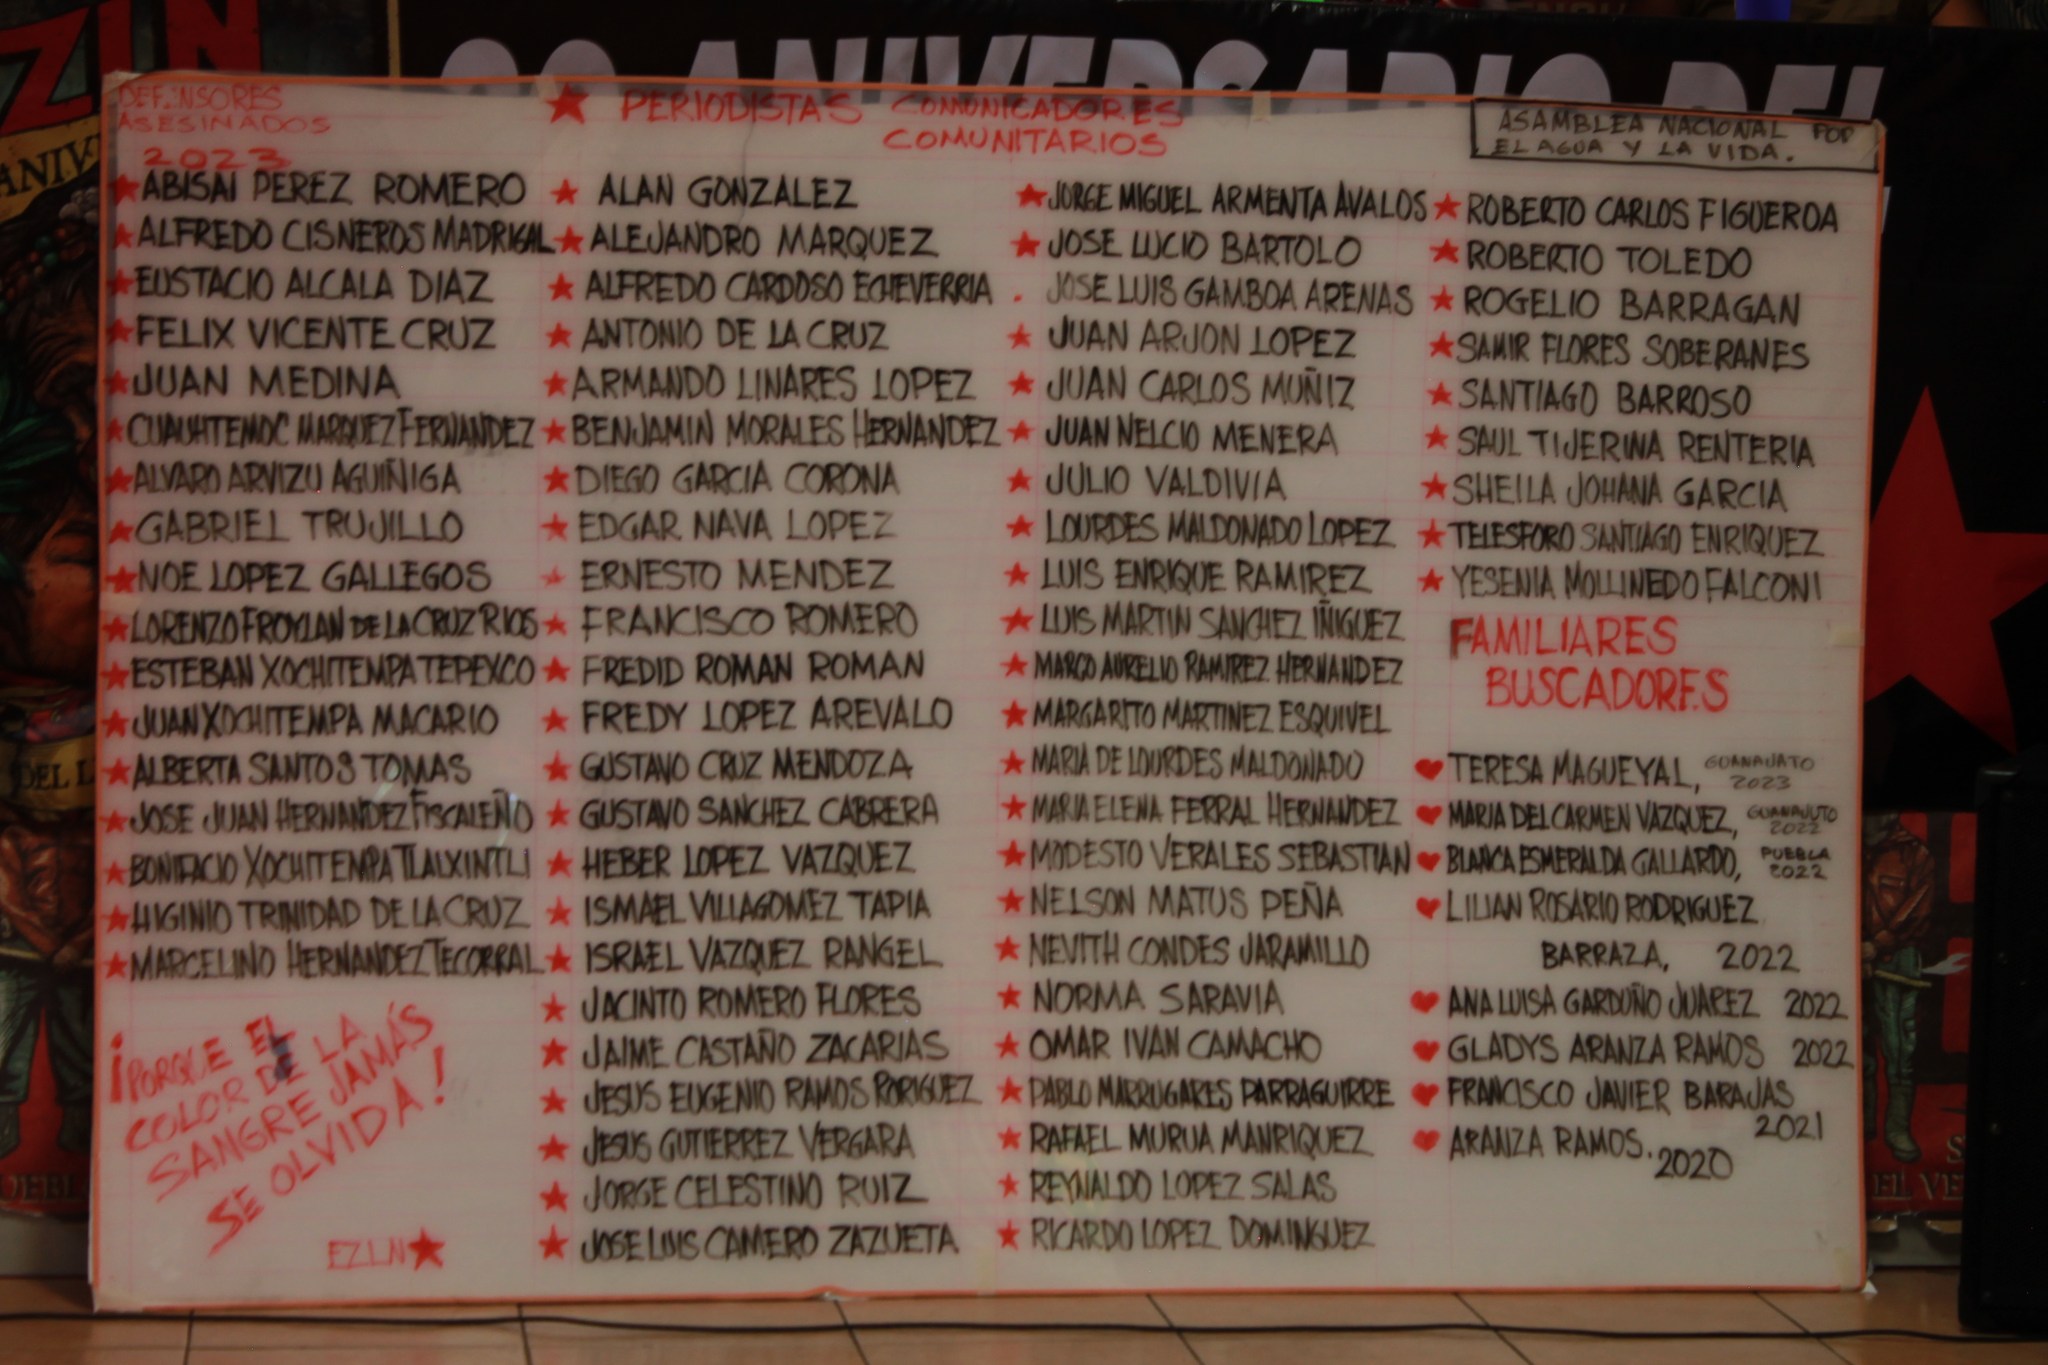 ANIVERSARIO DEL
DEFENSORES
ASESINADOS
2023
ABISAI PEREZ ROMERO
ALFREDO CISNEROS MADRIGAL
EUSTACIO ALCALA DIAZ
FELIX VICENTE CRUZ
JUAN MEDINA
CUAUHTEMOC MARQUEZ FERNANDEZ
ALVARO ARVIZU AGUIÑIGA
GABRIEL TRUJILLO
NOE LOPEZ GALLEGOS
LORENZO FROYLAN DE LA CRUZ RIOS
ESTEBAN XOCHITEMPA TEPEXCO
JUAN XOCHITEMPA MACARIO
ALBERTA SANTOS TOMAS
JOSE JUAN HERNANDEZ FISCALEÑO
BONIFACIO XOCHITEMPA TLALXINTLI
HIGINIO TRINIDAD DE LA CRUZ
MARCELINO HERNANDEZ TECORRAL
¡PORQUE EL
COLOR DE LA
SANGRE JAMÁS
SE OLVIDA!
EZLN
PERIODISTAS COMUNICADORES
COMUNITARIOS
ALAN GONZALEZ
ALEJANDRO MARQUEZ
ALFREDO CARDOSO ECHEVERRIA
ANTONIO DE LA CRUZ
ARMANDO LINARES LOPEZ
BENJAMIN MORALES HERNANDEZ
DIEGO GARCIA CORONA
EDGAR NAVA LOPEZ
ERNESTO MENDEZ
FRANCISCO ROMERO
FREDID ROMAN ROMAN
FREDY LOPEZ AREVALO
GUSTAVO CRUZ MENDOZA
GUSTAVO SANCHEZ CABRERA
HEBER LOPEZ VAZQUEZ
ISMAEL VILLAGOMEZ TAPIA
ISRAEL VAZQUEZ RANGEL
JACINTO ROMERO FLORES
JAIME CASTAÑO ZACARIAS
JESUS EUGENIO RAMOS RORIGUEZ
JESUS GUTIERREZ VERGARA
JORGE CELESTINO RUIZ
JOSE LUIS CAMERO ZAZUETA
JORGE MIGUEL ARMENTA AVALOS
JOSE LUCIO BARTOLO
JOSE LUIS GAMBOA ARENAS
JUAN ARJON LOPEZ
JUAN CARLOS MUÑIZ
JUAN NELCIO MENERA
JULIO VALDIVIA
LOURDES MALDONADO LOPEZ
LUIS ENRIQUE RAMIREZ
LUIS MARTIN SANCHEZ IÑIGUEZ
MARCO AURELIO RAMIREZ HERNANDEZ
MARGARITO MARTINEZ ESQUIVEL
MARIA DE LOURDES MALDONADO
MARIA ELENA FERRAL HERNANDEZ
MODESTO VERALES SEBASTIAN
NELSON MATUS PEÑA
NEVITH CONDES JARAMILLO
NORMA SARAVIA
OMAR IVAN CAMACHO
PABLO MARRUGARES PARRAGUIRRE
RAFAEL MURUA MANRIQUEZ
REYNALDO LOPEZ SALAS
RICARDO LOPEZ DOMINGUEZ
ASAMBLEA NACIONAL POR
EL AGUA Y LA VIDA.
ROBERTO CARLOS FIGUEROA
ROBERTO TOLEDO
ROGELIO BARRAGAN
SAMIR FLORES SOBERANES
SANTIAGO BARROSO
SAUL TIJERINA RENTERIA
SHEILA JOHANA GARCIA
TELESFORO SANTIAGO ENRIQUEZ
YESENIA MOLLINEDO FALCONI
FAMILIARES
BUSCADORES
TERESA MAGUEYAL, GUANAJATO
2023
MARIA DEL CARMEN VAZQUEZ, GUANAJUTO
2022
BLANCA ESMERALDA GALLARDO, PUEBLA
2022
LILIAN ROSARIO RODRIGUEZ
BARRAZA, 2022
ANA LUISA GARDUÑO JUAREZ 2022
GLADYS ARANZA RAMOS 2022
FRANCISCO JAVIER BARAJAS
2021
ARANZA RAMOS. 2020